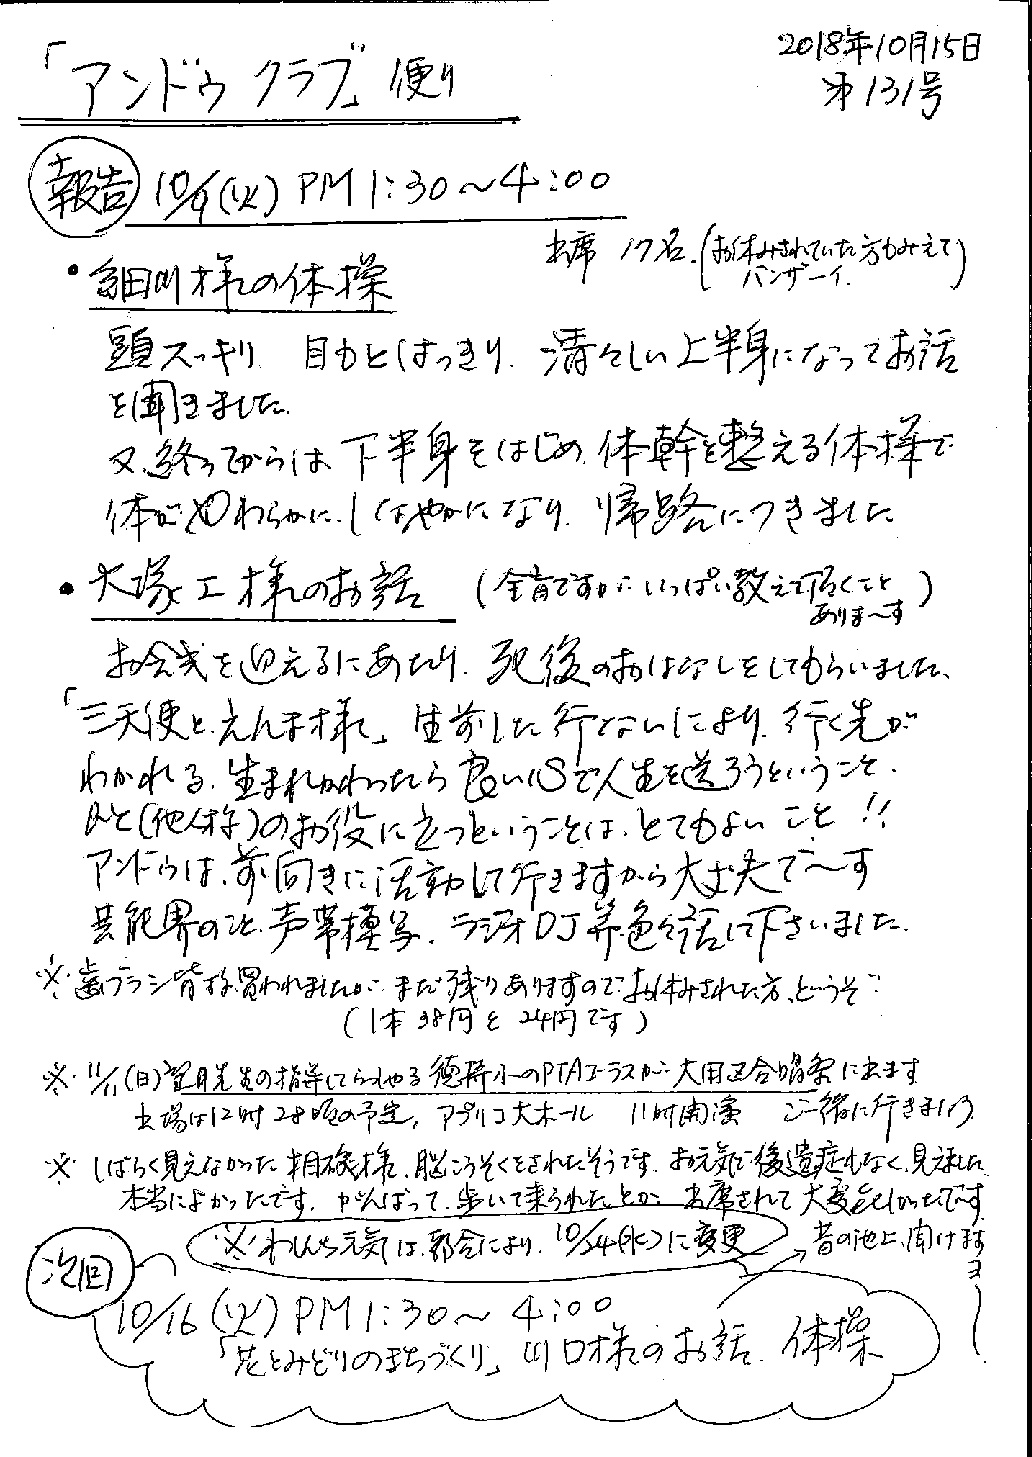 2018年10月15日
「アンドゥクラブ」便り
第131号
報告 10/9(火) PM 1:30～4:00
出席 17名.(お休みされていた方もみえて
バンザーイ.)
・細川様の体操
頭スッキリ 目もとはっきり. 清々しい上半身になってお話
を聞きました.
又、終ってからは、下半身をはじめ、体幹を整える体操で
体がやわらかに.しなやかになり. 帰路につきました
・大塚工様のお話 (全盲ですがいっぱい教えて頂くこと
ありま～す)
お会式を迎えるにあたり. 死後のおはなしをしてもらいました、
「三天使と.えんま様」 生前した行ないにより. 行く先が
わかれる. 生まれかわったら良い心で人生を送ろうということ.
ひと(他人様)のお役に立つということは、とてもよいこと!!
アンドゥは、前向きに活動して行きますから大丈夫で～す
芸能界のこと.声帯模写. ラジオDJ等色々話して下さいました.
※ 歯ブラシ皆様買われましたが まだ残りありますので お休みされた方、どうぞ
(1本38円と24円です)
※ 11/11(日)望月先生の指導してられる徳持小のPTAコーラスが 大田区合唱祭に出ます
出場は12時28分の予定, アプリコ大ホール 11時開演 ご一緒に行きましょう
※ しばらく見えなかった相磯様、脳こうそくをされたそうです. お元気で後遺症もなく、見えました
本当によかったです. がんばって、歩いて来られたとか 出席されて大変うれしかったで～す
※わんち元気は都合により. 10/24(水)に変更
昔の池上、聞けますヨ
次回
10/16(火) PM 1:30～4:00
「花とみどりのまちづくり」 川口様のお話. 体操